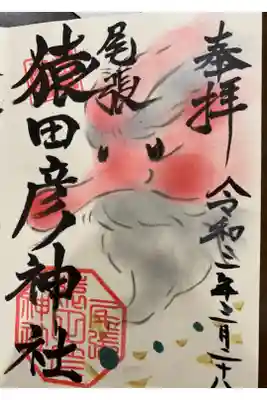 奉拝
令和三年二月二十八
尾張
猿田彦神社